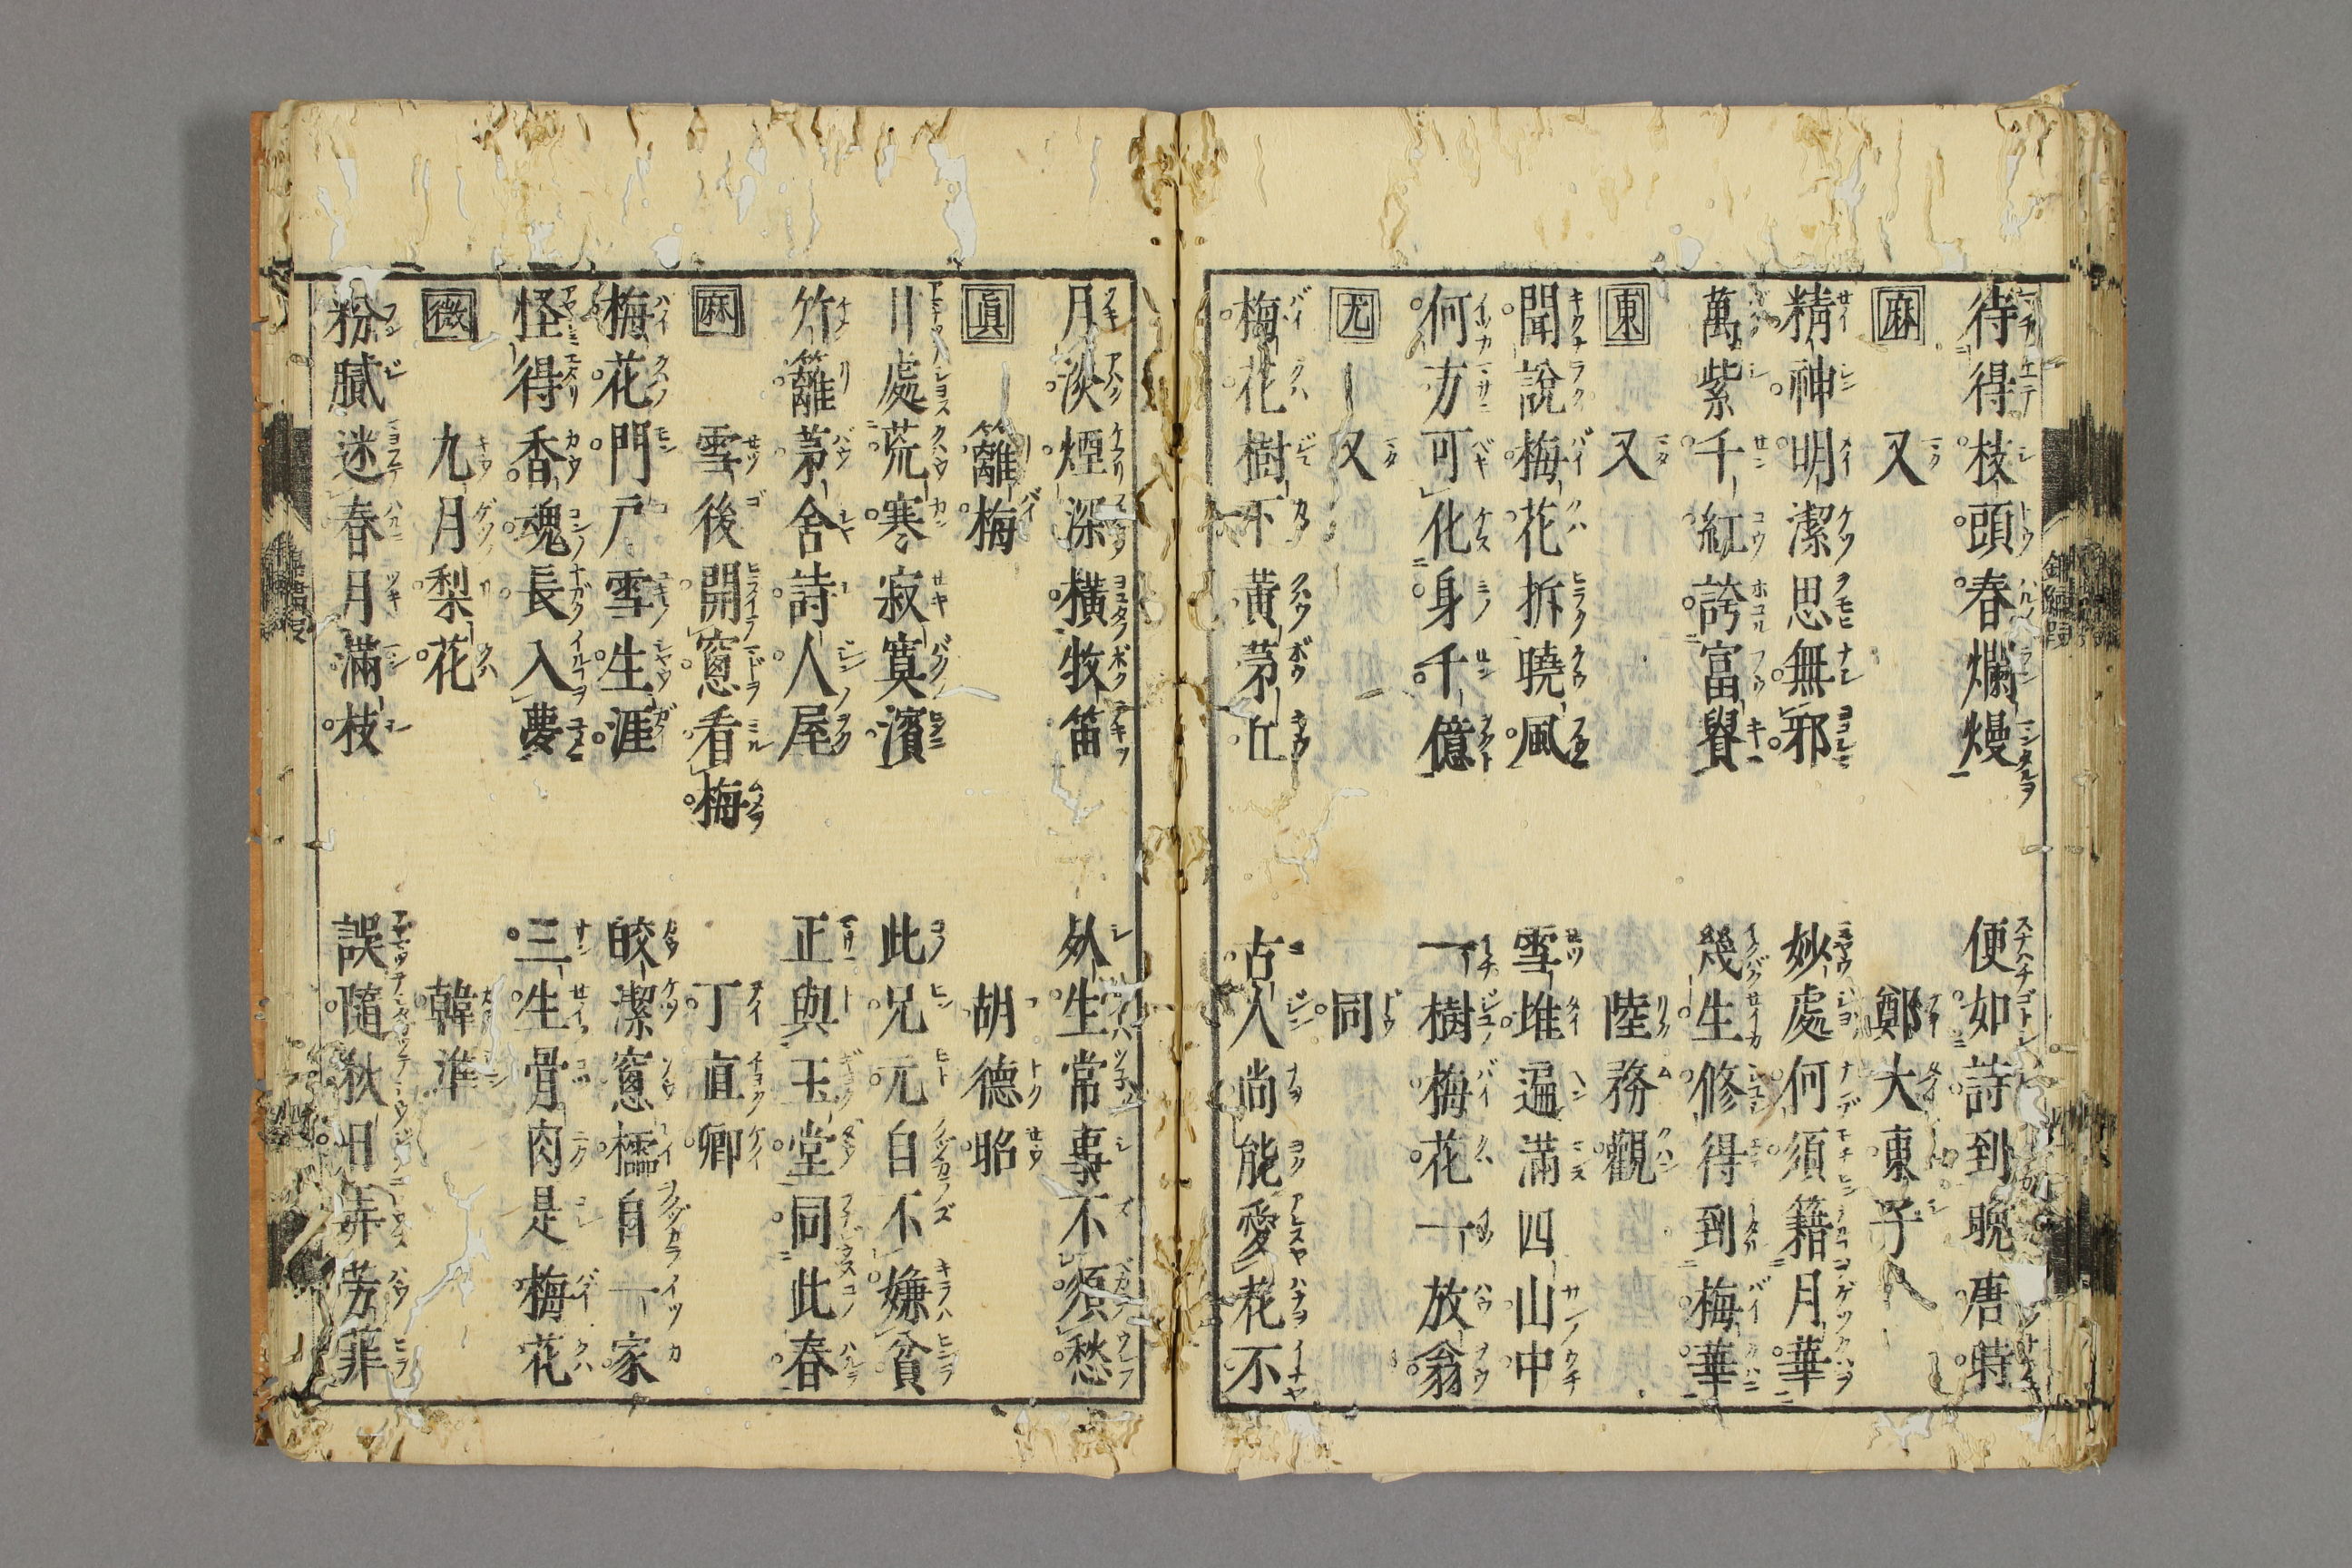 待得枝頭春爛熳　便如詩到晚唐時
麻　又　鄭大東子
精神明潔思無邪　妙處何須籍月華
萬紫千紅誇富貴　幾生修得到梅華
東　又　陸務觀
聞說梅花拆曉風　雪堆遍滿四山中
何方可化身千億　一樹梅花一放翁
尤　又　同
梅花樹下黃茅丘　古人尚能愛花不
月淡煙深橫牧笛　死生常事不須愁
眞　籬梅　胡德昭
川處荒寒寂寞濱　此兄元自不嫌貧
竹籬茅舍詩人屋　正與玉堂同此春
麻　雪後開窻看梅　丁直卿
梅花門戶雪生涯　皎潔窻櫺自一家
怪得香魂長入夢　三生骨肉是梅花
微　九月梨花　韓準
粉膩迷春月滿枝　誤隨秋日弄芳菲